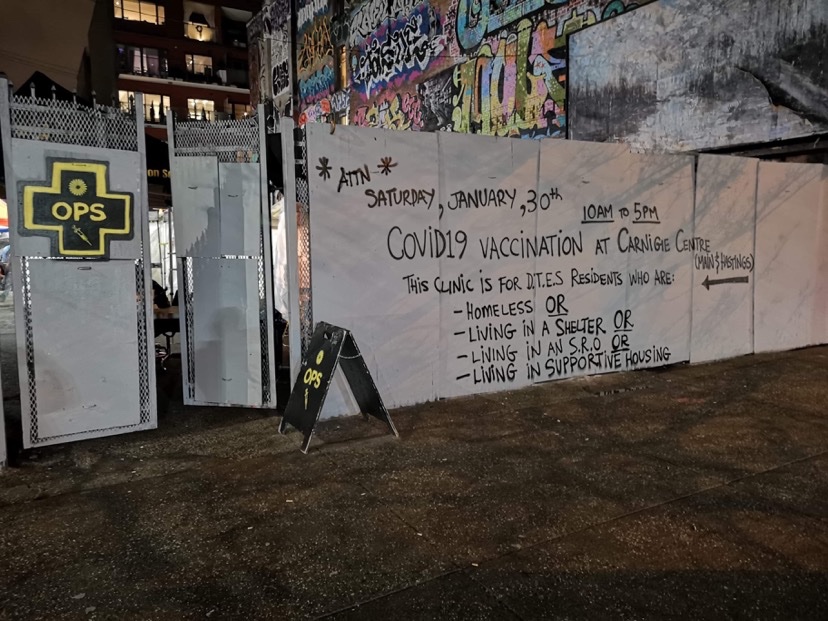 OPS
*ATTN*
SATURDAY, JANUARY, 30th
10AM TO 5PM
COVID19 VACCINATION AT CARNIGIE CENTRE
(MAIN & HASTINGS)
THIS CLINIC IS FOR D.T.E.S RESIDENTS WHO ARE:
- HOMELESS OR
- LIVING IN A SHELTER OR
- LIVING IN AN S.R.O OR
- LIVING IN SUPPORTIVE HOUSING
OPS